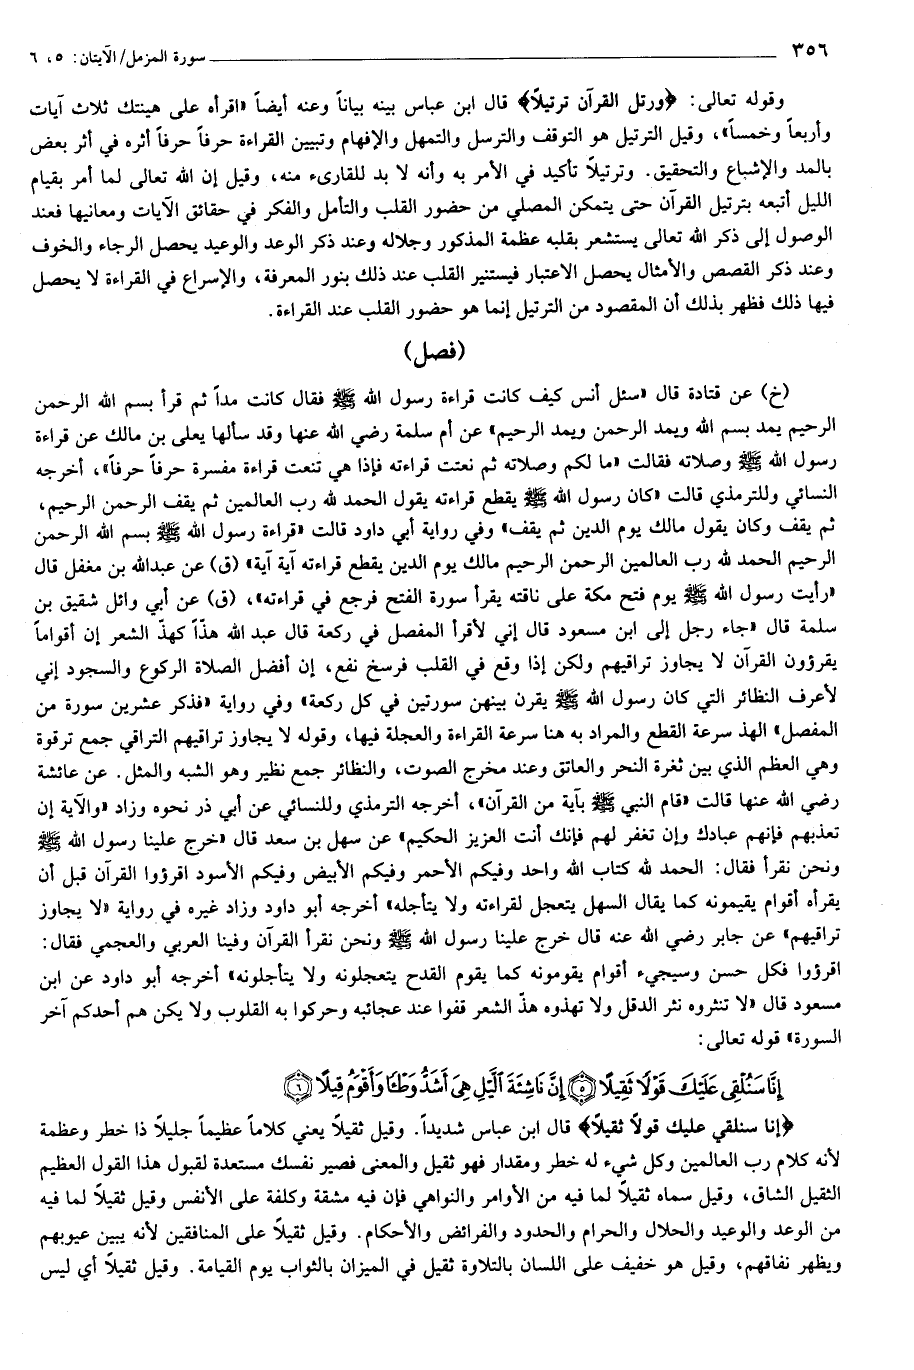 ٣٥٦ سورة المزمل/ الآيتان: ٥، ٦
وقوله تعالى: ﴿ورتل القرآن ترتيلاً﴾ قال ابن عباس بينه بياناً وعنه أيضاً «اقرأه على هينتك ثلاث آيات
وأربعاً وخمساً»، وقيل الترتيل هو التوقف والترسل والتمهل والإفهام وتبيين القراءة حرفاً حرفاً أثره في أثر بعض
بالمد والإشباع والتحقيق. وترتيلاً تأكيد في الأمر به وأنه لا بد للقارىء منه، وقيل إن الله تعالى لما أمر بقيام
الليل أتبعه بترتيل القرآن حتى يتمكن المصلي من حضور القلب والتأمل والفكر في حقائق الآيات ومعانيها فعند
الوصول إلى ذكر الله تعالى يستشعر بقلبه عظمة المذكور وجلاله وعند ذكر الوعد والوعيد يحصل الرجاء والخوف
وعند ذكر القصص والأمثال يحصل الاعتبار فيستنير القلب عند ذلك بنور المعرفة، والإسراع في القراءة لا يحصل
فيها ذلك فظهر بذلك أن المقصود من الترتيل إنما هو حضور القلب عند القراءة.
(فصل)
(خ) عن قتادة قال «سئل أنس كيف كانت قراءة رسول الله ﷺ فقال كانت مداً ثم قرأ بسم الله الرحمن
الرحيم يمد بسم الله ويمد الرحمن ويمد الرحيم» عن أم سلمة رضي الله عنها وقد سألها يعلى بن مالك عن قراءة
رسول الله ﷺ وصلاته فقالت «ما لكم وصلاته ثم نعتت قراءته فإذا هي تنعت قراءة مفسرة حرفاً حرفاً»، أخرجه
النسائي وللترمذي قالت «كان رسول الله ﷺ يقطع قراءته يقول الحمد لله رب العالمين ثم يقف الرحمن الرحيم،
ثم يقف وكان يقول مالك يوم الدين ثم يقف» وفي رواية أبي داود قالت «قراءة رسول الله ﷺ بسم الله الرحمن
الرحيم الحمد لله رب العالمين الرحمن الرحيم مالك يوم الدين يقطع قراءته آية آية» (ق) عن عبدالله بن مغفل قال
«رأيت رسول الله ﷺ يوم فتح مكة على ناقته يقرأ سورة الفتح فرجع في قراءته»، (ق) عن أبي وائل شقيق بن
سلمة قال «جاء رجل إلى ابن مسعود قال إني لأقرأ المفصل في ركعة قال عبد الله هذّاً كهذّ الشعر إن أقواماً
يقرؤون القرآن لا يجاوز تراقيهم ولكن إذا وقع في القلب فرسخ نفع، إن أفضل الصلاة الركوع والسجود إني
لأعرف النظائر التي كان رسول الله ﷺ يقرن بينهن سورتين في كل ركعة» وفي رواية «فذكر عشرين سورة من
المفصل» الهذ سرعة القطع والمراد به هنا سرعة القراءة والعجلة فيها، وقوله لا يجاوز تراقيهم التراقي جمع ترقوة
وهي العظم الذي بين ثغرة النحر والعاتق وعند مخرج الصوت، والنظائر جمع نظير وهو الشبه والمثل. عن عائشة
رضي الله عنها قالت «قام النبي ﷺ بآية من القرآن»، أخرجه الترمذي وللنسائي عن أبي ذر نحوه وزاد «والآية إن
تعذبهم فإنهم عبادك وإن تغفر لهم فإنك أنت العزيز الحكيم» عن سهل بن سعد قال «خرج علينا رسول الله ﷺ
ونحن نقرأ فقال: الحمد لله كتاب الله واحد وفيكم الأحمر وفيكم الأبيض وفيكم الأسود اقرؤوا القرآن قبل أن
يقرأه أقوام يقيمونه كما يقال السهل يتعجل لقراءته ولا يتأجله» أخرجه أبو داود وزاد غيره في رواية «لا يجاوز
تراقيهم» عن جابر رضي الله عنه قال خرج علينا رسول الله ﷺ ونحن نقرأ القرآن وفينا العربي والعجمي فقال:
اقرؤوا فكل حسن وسيجيء أقوام يقومونه كما يقوم القدح يتعجلونه ولا يتأجلونه» أخرجه أبو داود عن ابن
مسعود قال «لا تنثروه نثر الدقل ولا تهذوه هذّ الشعر قفوا عند عجائبه وحركوا به القلوب ولا يكن هم أحدكم آخر
السورة» قوله تعالى:
إِنَّا سَنُلْقِى عَلَيْكَ قَوْلًا ثَقِيلًا ٥ إِنَّ نَاشِئَةَ ٱلَّيْلِ هِىَ أَشَدُّ وَطْـًٔا وَأَقْوَمُ قِيلًا ٦
﴿إنا سنلقي عليك قولاً ثقيلاً﴾ قال ابن عباس شديداً. وقيل ثقيلاً يعني كلاماً عظيماً جليلاً ذا خطر وعظمة
لأنه كلام رب العالمين وكل شيء له خطر ومقدار فهو ثقيل والمعنى فصير نفسك مستعدة لقبول هذا القول العظيم
الثقيل الشاق، وقيل سماه ثقيلاً لما فيه من الأوامر والنواهي فإن فيه مشقة وكلفة على الأنفس وقيل ثقيلاً لما فيه
من الوعد والوعيد والحلال والحرام والحدود والفرائض والأحكام. وقيل ثقيلاً على المنافقين لأنه يبين عيوبهم
ويظهر نفاقهم، وقيل هو خفيف على اللسان بالتلاوة ثقيل في الميزان بالثواب يوم القيامة. وقيل ثقيلاً أي ليس